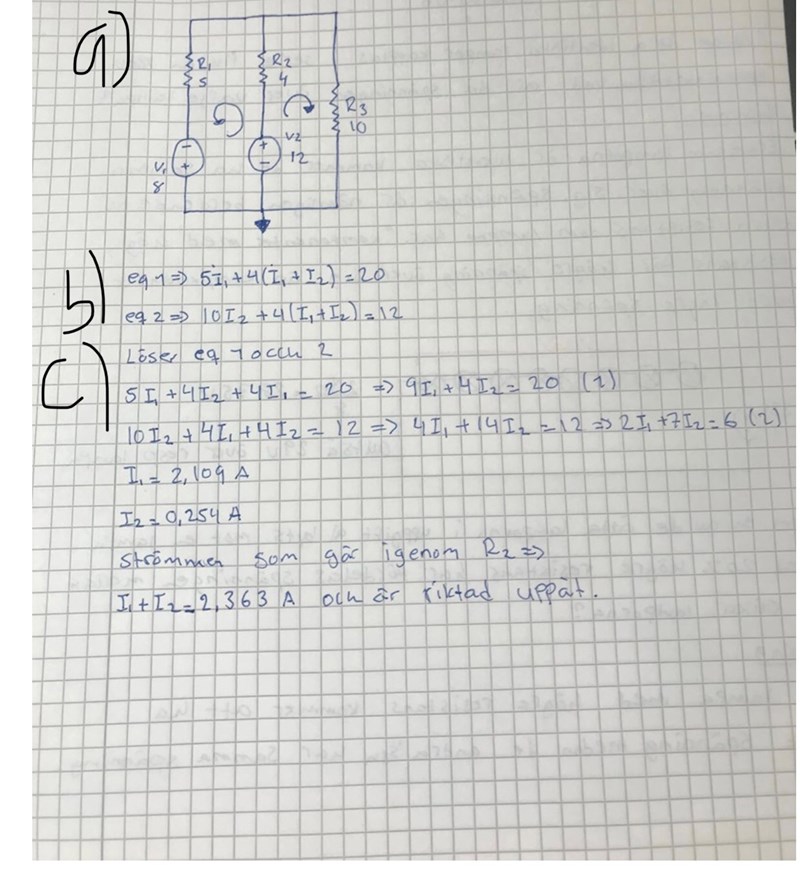 a)
R1
5
R2
4
R3
10
V1
8
- +
V2
12
+ -
b)
eq 1 => 5I1 + 4(I1 + I2) = 20
eq 2 => 10I2 + 4(I1 + I2) = 12
c)
Löser eq 1 occh 2
5I1 + 4I2 + 4I1 = 20 => 9I1 + 4I2 = 20 (1)
10I2 + 4I1 + 4I2 = 12 => 4I1 + 14I2 = 12 => 2I1 + 7I2 = 6 (2)
I1 = 2,109 A
I2 = 0,254 A
Strömmen som går igenom R2 =>
I1 + I2 = 2,363 A och är riktad uppåt.